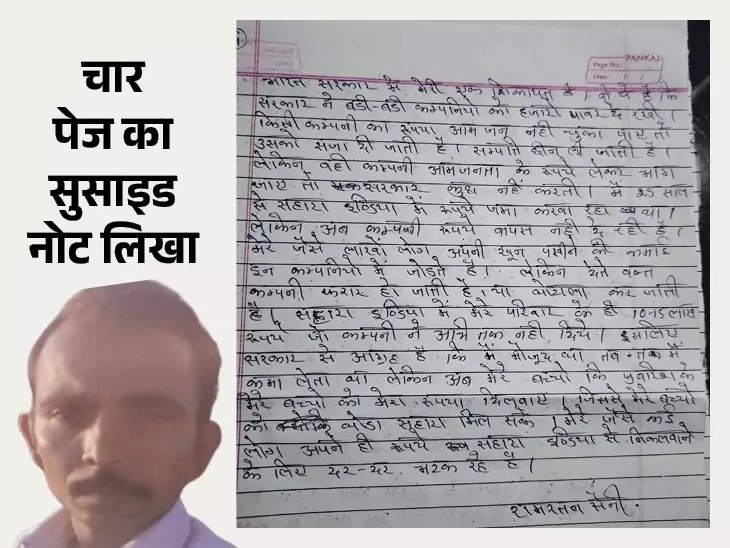 चार
पेज का
सुसाइड
नोट लिखा
PANKAJ
Page No.:
Date : / /
भारत सरकार से मेरी एक शिकायत है। वो ये है कि
सरकार ने बडी-बडी कम्पनियो को हजारो पावर दे रखी।
किसी कम्पनी का रूपया आमजन नही चुका पाए तो
उसको सजा दी जाती है। सम्पति छीन ली जाती है।
लेकिन वही कम्पनी आमजनता के रूपये लेकर भाग
जाए तो सरकार कुछ नही करती। में साल
से सहारा इण्डिया में रूपये जमा करवा रहा था।
लेकिन अब कम्पनी रूपये वापस नही दे रही है।
मेरे जैसे लाखो लोग अपनी खून पसीने की कमाई
इन कम्पनियो मे जोडते है। लेकिन देते वक्त
कम्पनी फरार हो जाती है, या घोटाला कर जाती
है। सहारा इण्डिया में मेरे परिवार के ही 10-15 लाख
रूपये जो कम्पनी ने अभी तक नही दिये। इसलिए
सरकार से आग्रह है कि मै मौजूद था तब तक में
कमा लेता था लेकिन अब मेरे बच्चो कि परवरिश के
मेरे बच्चो को मेरा रूपया दिलवाए। जिससे मेरे बच्चो
को थोडा सहारा मिल सके। मेरे जैसे कई
लोग अपने ही रूपये सहारा इण्डिया से निकलवाने
के लिए दर-दर भटक रहे है।
रामरतन सैनी